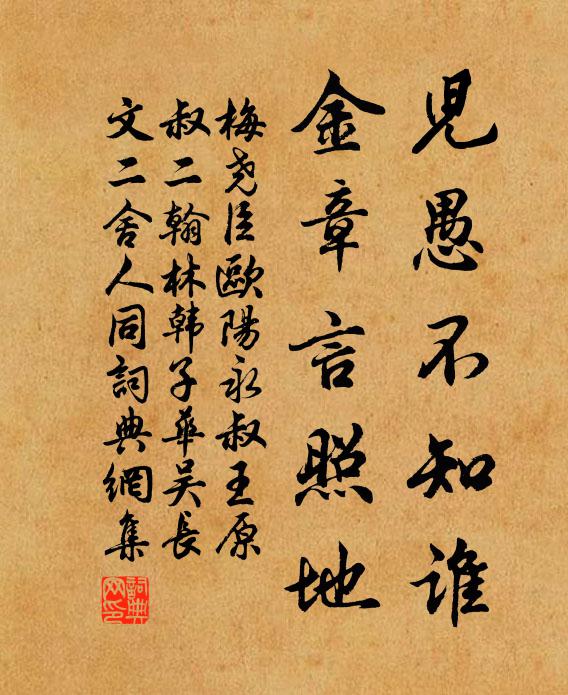 兒愚不知誰
金章言照地
梅尧臣歐陽永叔王原
叔二翰林韩子華吴長
文二舍人同詞典網集
詞典
网印